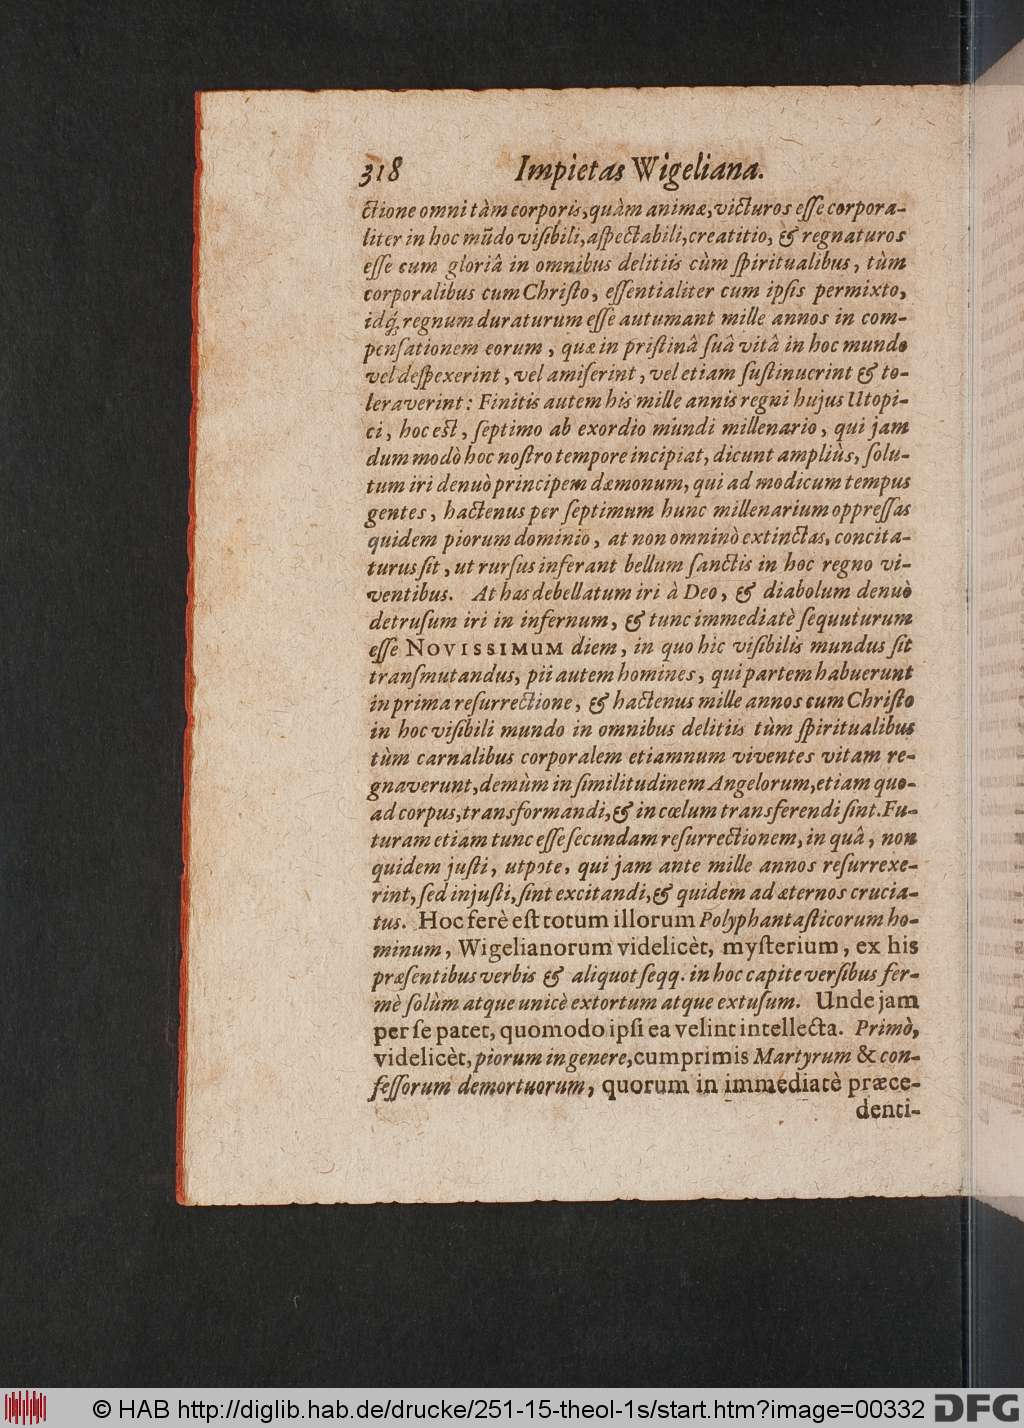 318 Impietas Wigeliana.
ctione omni tàm corporis, quàm animæ, victuros eſſe corpora-
liter in hoc mūdo viſibili, aſpectabili, creatitio, & regnaturos
eſſe cum gloriâ in omnibus delitiis cùm ſpiritualibus, tùm
corporalibus cum Chriſto, eſſentialiter cum ipſis permixto,
idq́; regnum duraturum eſſe autumant mille annos in com-
penſationem eorum, quæ in priſtinâ ſuâ vitâ in hoc mundo
vel deſpexerint, vel amiſerint, vel etiam ſuſtinuerint & to-
leraverint: Finitis autem his mille annis regni hujus Utopi-
ci, hoc eſt, ſeptimo ab exordio mundi millenario, qui jam
dummodò hoc noſtro tempore incipiat, dicunt ampliùs, ſolu-
tum iri denuò principem dæmonum, qui ad modicum tempus
gentes, hactenus per ſeptimum hunc millenarium oppreſſas
quidem piorum dominio, at non omninò extinctas, concita-
turus ſit, ut rurſus inferant bellum ſanctis in hoc regno vi-
ventibus. At has debellatum iri à Deo, & diabolum denuò
detruſum iri in infernum, & tunc immediatè ſequuturum
eſſe NOVISSIMUM diem, in quo hic viſibilis mundus ſit
tranſmutandus, pii autem homines, qui partem habuerunt
in prima reſurrectione, & hactenus mille annos cum Chriſto
in hoc viſibili mundo in omnibus delitiis tùm ſpiritualibus
tùm carnalibus corporalem etiamnum viventes vitam re-
gnaverunt, demùm in ſimilitudinem Angelorum, etiam quo-
ad corpus, transformandi, & in cœlum transferendi ſint. Fu-
turam etiam tunc eſſe ſecundam reſurrectionem, in quâ, non
quidem juſti, utpote, qui jam ante mille annos reſurrexe-
rint, ſed injuſti, ſint excitandi, & quidem ad æternos crucia-
tus. Hoc ferè eſt totum illorum Polyphantaſticorum ho-
minum, Wigelianorum videlicèt, myſterium, ex his
præſentibus verbis & aliquot ſeqq. in hoc capite verſibus fer-
mè ſolùm atque unicè extortum atque extuſum. Unde jam
per ſe patet, quomodo ipſi ea velint intellecta. Primò,
videlicèt, piorum in genere, cumprimis Martyrum & con-
feſſorum demortuorum, quorum in immediatè præce-
denti-
© HAB http://diglib.hab.de/drucke/251-15-theol-1s/start.htm?image=00332 DFG